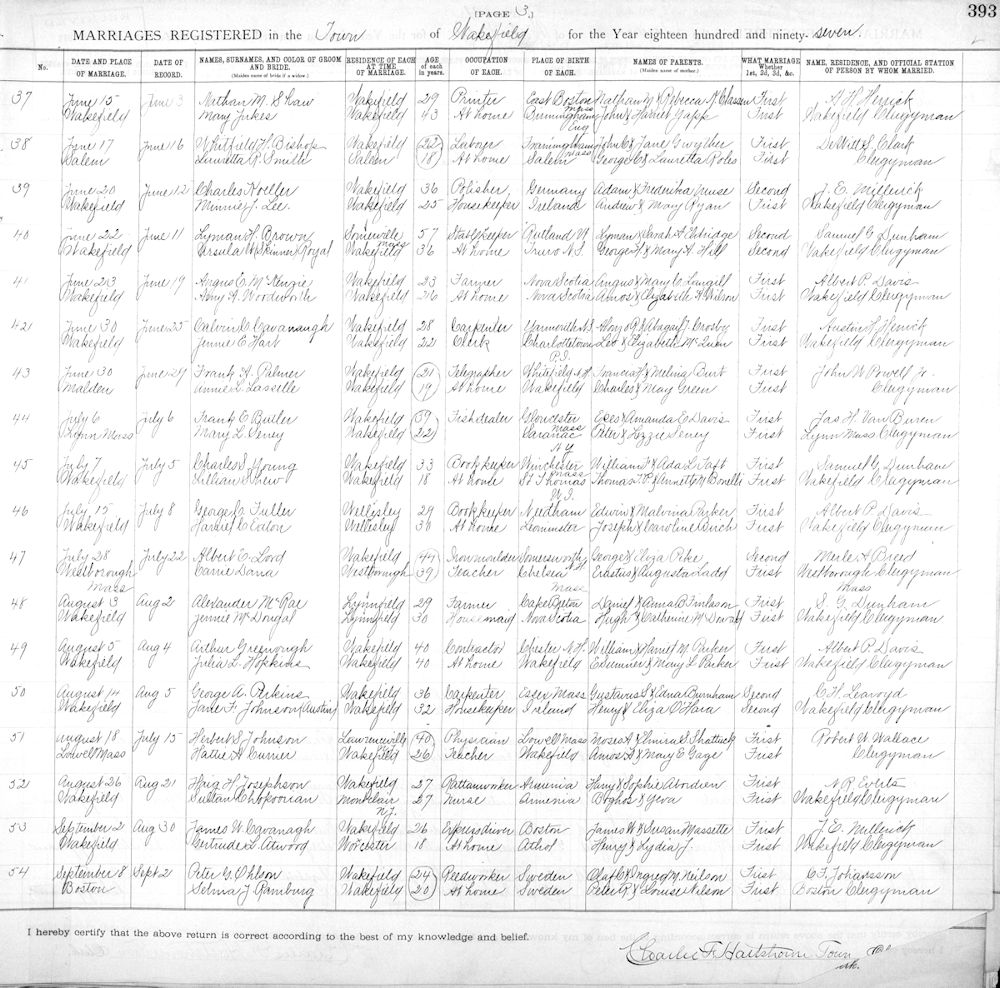 [PAGE 3.]
393
MARRIAGES REGISTERED in the Town of Wakefield for the Year eighteen hundred and ninety-seven.
No. DATE AND PLACE OF MARRIAGE. DATE OF RECORD. NAMES, SURNAMES, AND COLOR OF GROOM AND BRIDE. (Maiden name of bride if a widow.) RESIDENCE OF EACH AT TIME OF MARRIAGE. AGE of each in years. OCCUPATION OF EACH. PLACE OF BIRTH OF EACH. NAMES OF PARENTS. (Maiden name of mother.) WHAT MARRIAGE Whether 1st, 2d, 3d, &c. NAME, RESIDENCE, AND OFFICIAL STATION OF PERSON BY WHOM MARRIED.
37 June 15 June Nathan M. Shaw Wakefield 29 Printer East Boston Nathan M & Rebecca First A H Herrick
Wakefield Mary Jukes Wakefield 43 At home Birmingham Eng John & Harriet First Wakefield Clergyman
38 June 17 June 16 Whitfield H. Bishop Wakefield Laborer Framingham Mass John C & Jane Gwyther First DeWitt S. Clark
Salem R. Smith Salem 18 At home Salem George C & Lauretta Roles First Clergyman
39 June 20 June 12 Charles Noeller Wakefield 36 Polisher Germany Adam & Frederika Second J. E. Millerick
Wakefield Minnie J. Lee. Wakefield 25 Housekeeper Ireland Andrew & Mary Ryan First Wakefield Clergyman
40 June 22 June 11 Lyman H. Brown Somerville Mass 57 Stablekeeper Rutland Lyman & Sarah A. Second Samuel G. Dunham
Wakefield Ursula W (Skinner) Royal Wakefield 36 At home Truro N.S. George H & Mary A. Hill Second Wakefield Clergyman
41 June 23 June 19 Angus E. McKenzie Wakefield 23 Farmer Nova Scotia Angus & Mary C. Langill First Albert P. Davis
Wakefield Amy A. Woodworth Wakefield 26 At home Nova Scotia Amos & Elizabeth A Wilson First Wakefield Clergyman
421 June 30 June 25 Calvin C. Cavanaugh Wakefield 28 Carpenter Yarmouth N.S. & Abagail J. Crosby First Austin H. Herrick
Wakefield Jennie E Hart Wakefield 22 Clerk Charlottetown P.I. Leo & Elizabeth McQueen First Wakefield Clergyman
43 June 30 June 29 Frank A. Palmer Wakefield 21 Telegrapher Whitefield N.H. Francis & Melvina Burt First John W. Powell Jr.
Malden Annie C. Lasselle Wakefield 19 At home Wakefield Charles & Mary Green First Clergyman
44 July 6 July 6 Frank E Butler Wakefield Fish dealer Gloucester Mass & Amanda E Davis First Jas H. Van Buren
Lynn Mass Mary L Seney Wakefield 22 Saranac N Y Peter & Lizzie Seney First Lynn Mass Clergyman
45 July 7 July 5 Charles S. Young Wakefield 33 Bookkeeper Winchester Mass William & Ada L Taft First Samuel G. Dunham
Wakefield Lillian Wakefield 18 At home St Thomas W.I. Thomas & Annette N Bonelli First Wakefield Clergyman
46 July 15 July 8 George E Fuller Wellesley 29 Bookkeeper Needham Edwin & Malvina Parker First Albert P. Davis
Wakefield Harriet C Eaton Wellesley 30 At home Leominster Joseph & Caroline First Wakefield Clergyman
47 July 28 July 22 Albert E. Lord Wakefield 44 Iron moulder Somersworth N.H. George & Eliza Pike Second Merle A Breed
Westborough Mass Carrie Dana Westborough 39 Teacher Chelsea Mass Erastus & Augusta Ladd First Westborough Clergyman Mass
48 August 3 Aug 2 Alexander McRae Lynnfield 29 Farmer Cape Breton Daniel & Anna B Finlason First S. G. Dunham
Wakefield Jennie McDougal Lynnfield 30 Housemaid Nova Scotia Hugh & Catherine McDonald First Wakefield Clergyman
49 August 5 Aug 4 Arthur Greenough Wakefield 40 Contractor Chester N.H. William & Harriet M. Parker First Albert P. Davis
Wakefield Julia L. Hopkins Wakefield 40 At home Wakefield & Mary L Parker First Wakefield Clergyman
50 August 14 Aug 5 George A. Perkins Wakefield 36 Carpenter Essex Mass Gustavus & Edna Burnham Second C.H. Leavoyd
Wakefield Jane F. Johnson (Austin) Wakefield 32 Housekeeper Ireland Henry & Eliza O'Hara Second Wakefield Clergyman
51 August 18 July 15 Herbert S. Johnson Lawrenceville 40 Physician Lowell Mass Moses A & Elmira L Shattuck First Robert W. Wallace
Lowell Mass Hattie A Wakefield 26 Teacher Wakefield Amos & Mary E Gage First Clergyman
52 August 26 Aug 21 Haig H Josephson Wakefield 27 Rattanworker Armenia Harry & Sophie First N. R. Everts
Wakefield Sultan Chopoorian Montclair N.J. 27 Nurse Armenia Boghos & Yeva First Wakefield Clergyman
53 September 2 Aug 30 James W. Cavanagh Wakefield 26 Express driver Boston James W & Susan Massette First J.E. Millerick
Wakefield Gertrude L Atwood Worcester 18 At home Athol Henry & Lydia J. First Wakefield Clergyman
54 September 8 Sept 2 Peter G. Ohlson Wakefield 24 Reedworker Sweden Olaf & Ingred M. Neilson First C.F. Johansson
Boston Selma J Ramburg Wakefield 20 At home Sweden Peter R & Louise Nelson First Boston Clergyman
I hereby certify that the above return is correct according to the best of my knowledge and belief.
Charles F. Hartshorne Town Clerk.